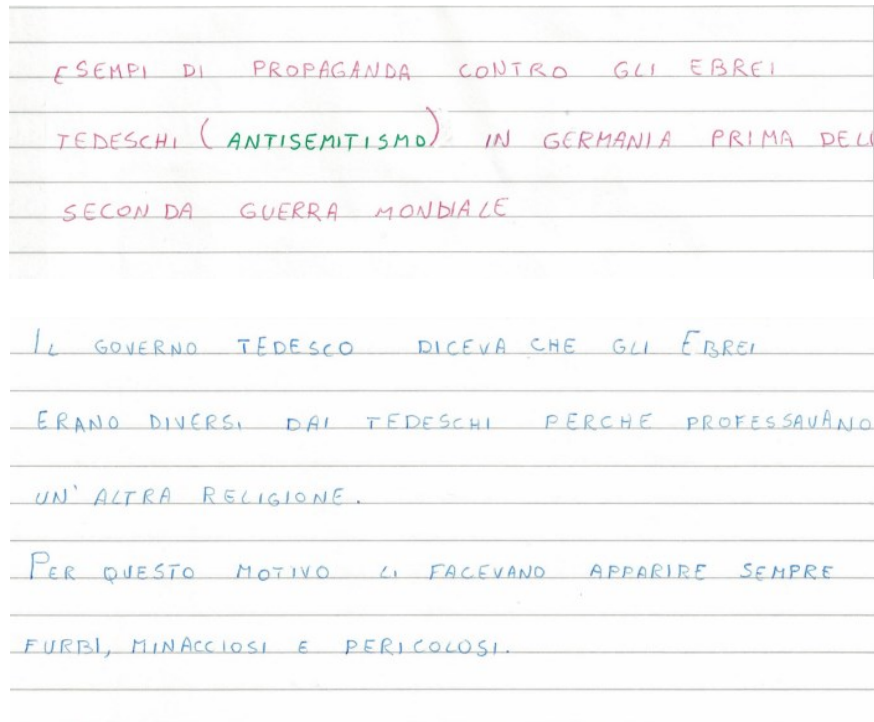 ESEMPI DI PROPAGANDA CONTRO GLI EBREI
TEDESCHI (ANTISEMITISMO) IN GERMANIA PRIMA DELL
SECONDA GUERRA MONDIALE
IL GOVERNO TEDESCO DICEVA CHE GLI EBREI
ERANO DIVERSI DAI TEDESCHI PERCHE PROFESSAVANO
UN'ALTRA RELIGIONE.
PER QUESTO MOTIVO LI FACEVANO APPARIRE SEMPRE
FURBI, MINACCIOSI E PERICOLOSI.